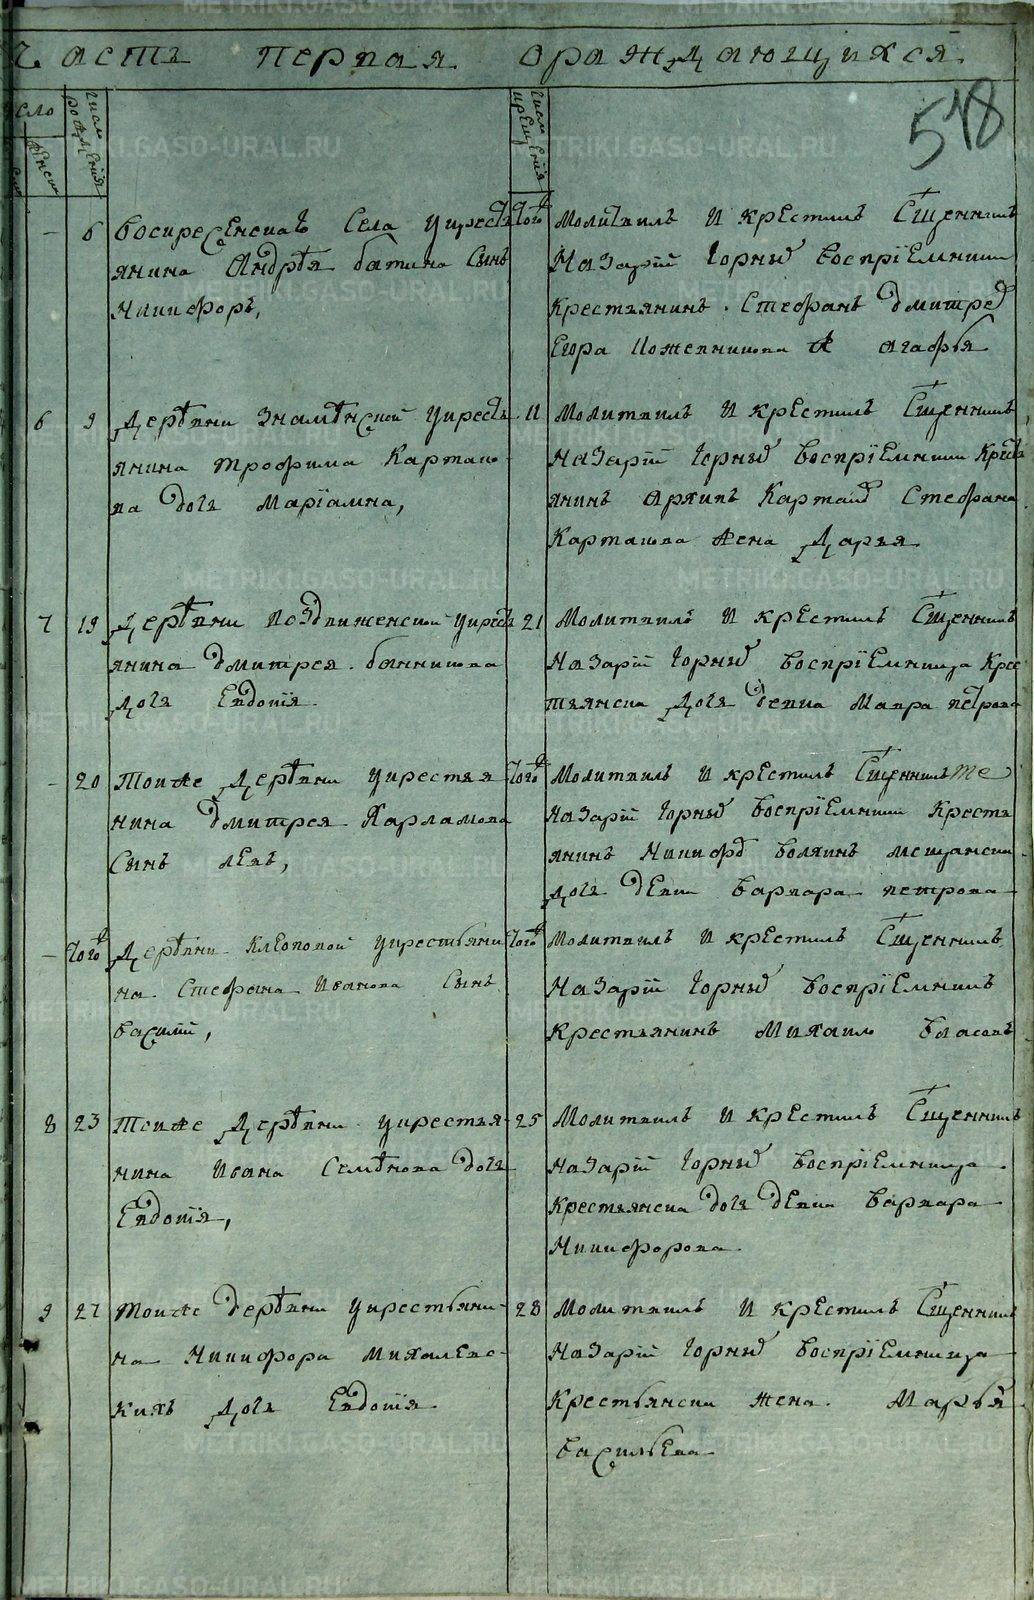 Часть первая оражДающихся
518
число
женск
число рождения
число крещения
6 Воскресенскаѡ Села у крестья
янина Андрѣя батина Сынъ
Никифоръ,
тогож Молитвилъ и крестилъ Сщенникъ
Назарїй Горныд Воспрїемники
Крестьянинъ Стефанъ Дмитред
Егора Кожевникова Агафья
6 9 Деревни Знамѣнской у крест
янина трофима Карташо
ва Дочь Марїамна,
11 Молитвилъ и крестилъ Сщенникъ
Назарїй Горныд Воспрїемники Крест
янинъ Архипъ Карташ Стефана
Карташова жена Дарья
7 19 Деревни Воздвиженской у крест
янина Дмитрея банникова
Дочь Евдотїя
21 Молитвилъ и крестилъ Сщенникъ
Назарїй Горныд Воспрїемница Крес
тьянска Дочь Девка Мавра петрова
20 Тоиже Деревни у крестья
нина Дмитрея Харламова
Сынъ левъ,
тогож Молитвилъ и крестилъ Сщенникъ тѣ
Назарїй Горныд Воспрїемники Кресть
янинъ Никифд Волкинъ мещанска
Дочь Девки Варвара петрова
тогож Деревни Клеопиной у крестьяни
на Стефана Иванова Сынъ
Василїй,
тогож Молитвилъ и крестилъ Сщенникъ
Назарїй Горныд Воспрїемникъ
Крестьянинъ Михаило Власовъ
8 23 Тоиже Деревни у крестья
нина Ивана Семѣнова Дочь
Евдотїя,
25 Молитвилъ и крестилъ Сщенникъ
Назарїй Горныд Воспрїемница
Крестьянска Дочь Девка Варвара
Никифорова
9 27 Тоиже Деревни у крестьяни-
на Никифора михалевс-
кихъ Дочь Евдотїя
28 Молитвилъ и крестилъ Сщенникъ
Назарїй Горныд Воспрїемница
Крестьянски жена Марья
Васильева
METRIKI.GASO-URAL.RU